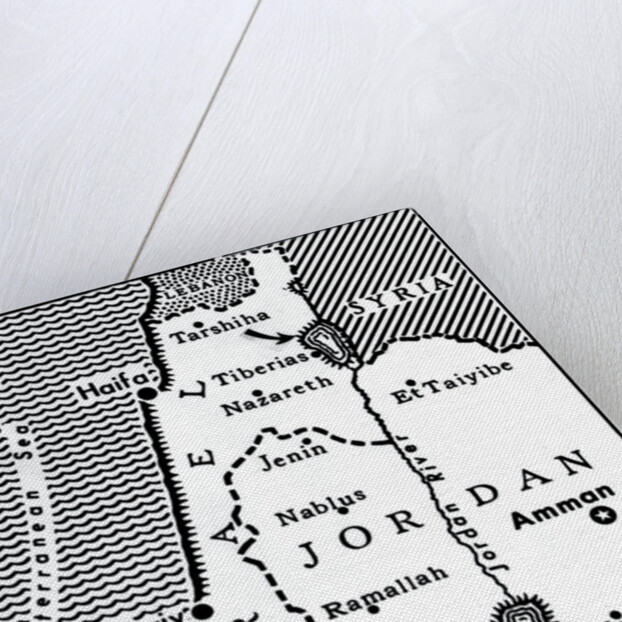 LEBANON
SYRIA
Tarshiha
Haifa
Tiberias
Nazareth
Et Taiyibe
Jenin
Nablus
JORDAN
Jordan River
Amman
Ramallah